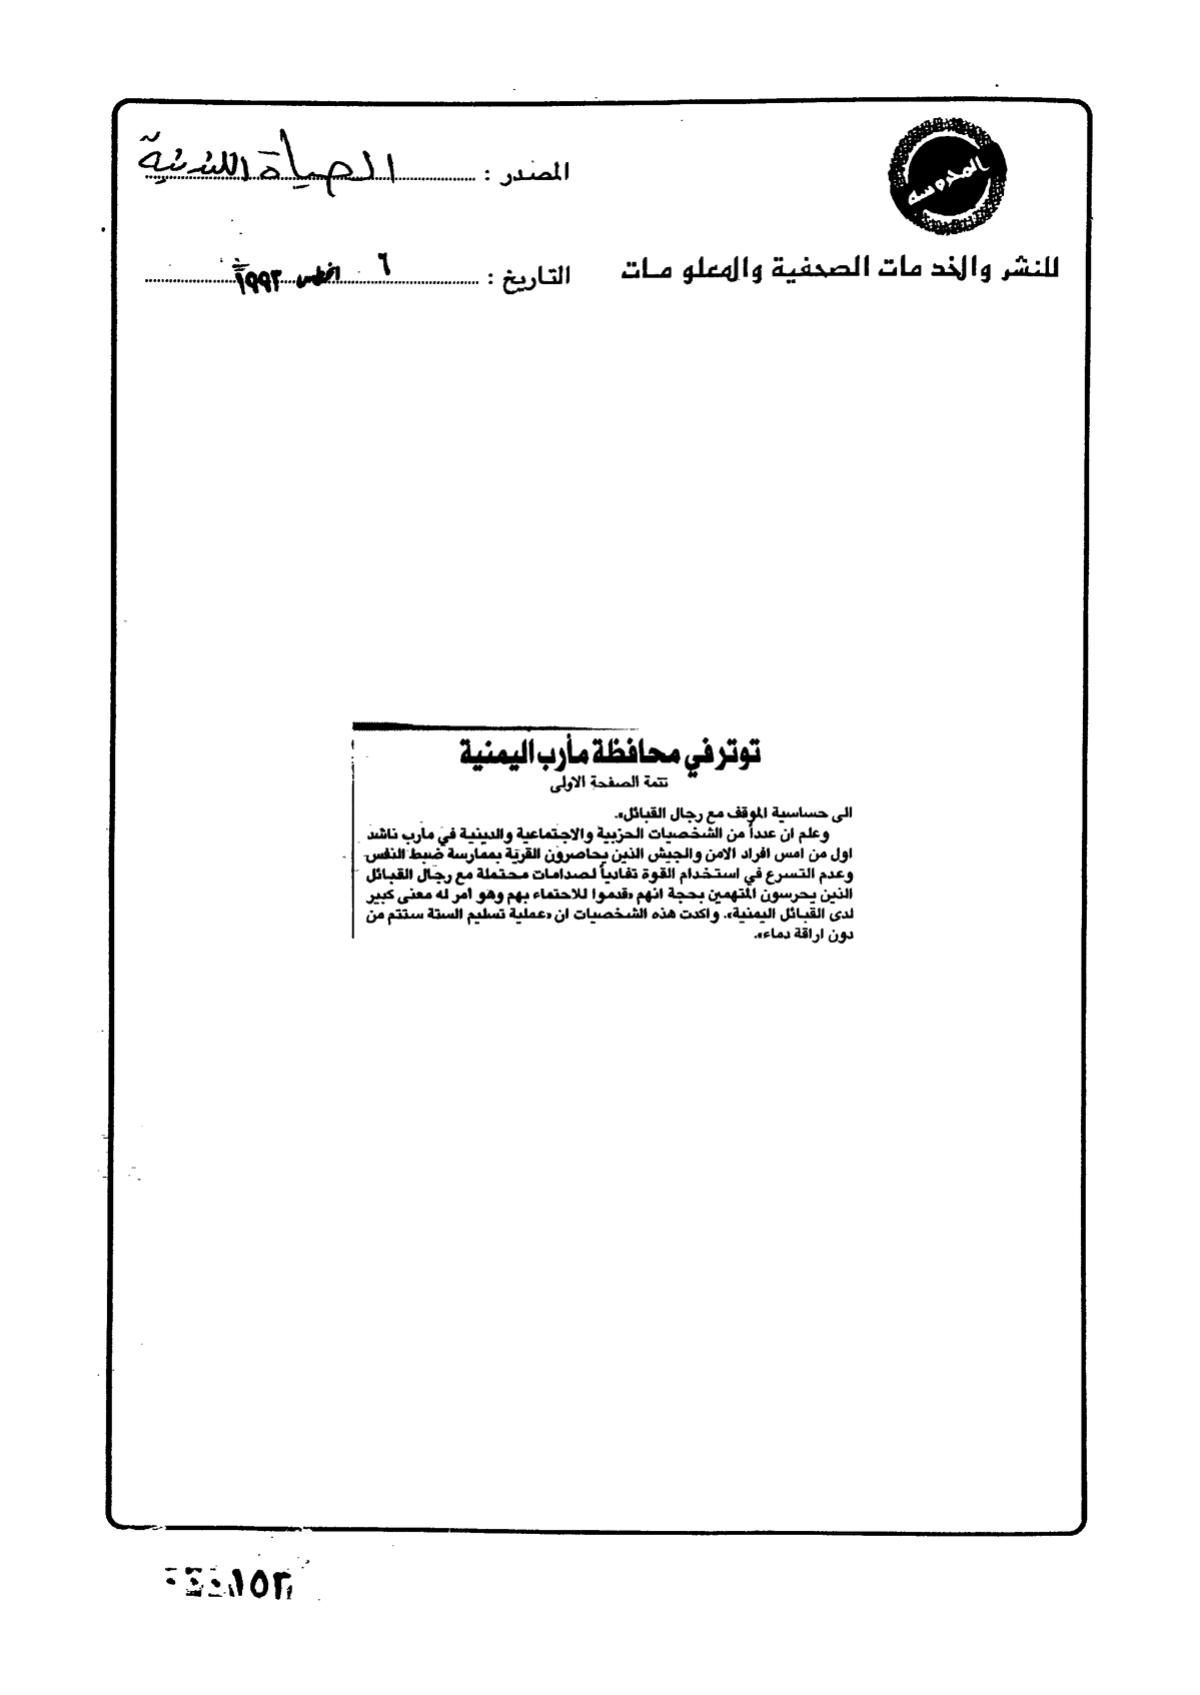 المدوسه
للنشر والخدمات الصحفية والمعلومات
المصدر : الحياة اللندنية
التاريخ : ٦ اغسطس ١٩٩٣
توتر في محافظة مأرب اليمنية
تتمة الصفحة الاولى
الى حساسية الموقف مع رجال القبائل».
وعلم ان عدداً من الشخصيات الحزبية والاجتماعية والدينية في مأرب ناشد
اول من امس افراد الامن والجيش الذين يحاصرون القرية بممارسة ضبط النفس
وعدم التسرع في استخدام القوة تفادياً لصدامات محتملة مع رجال القبائل
الذين يحرسون المتهمين بحجة انهم «قدموا للاحتماء بهم وهو امر له معنى كبير
لدى القبائل اليمنية». واكدت هذه الشخصيات ان «عملية تسليم الستة ستتم من
دون اراقة دماء».